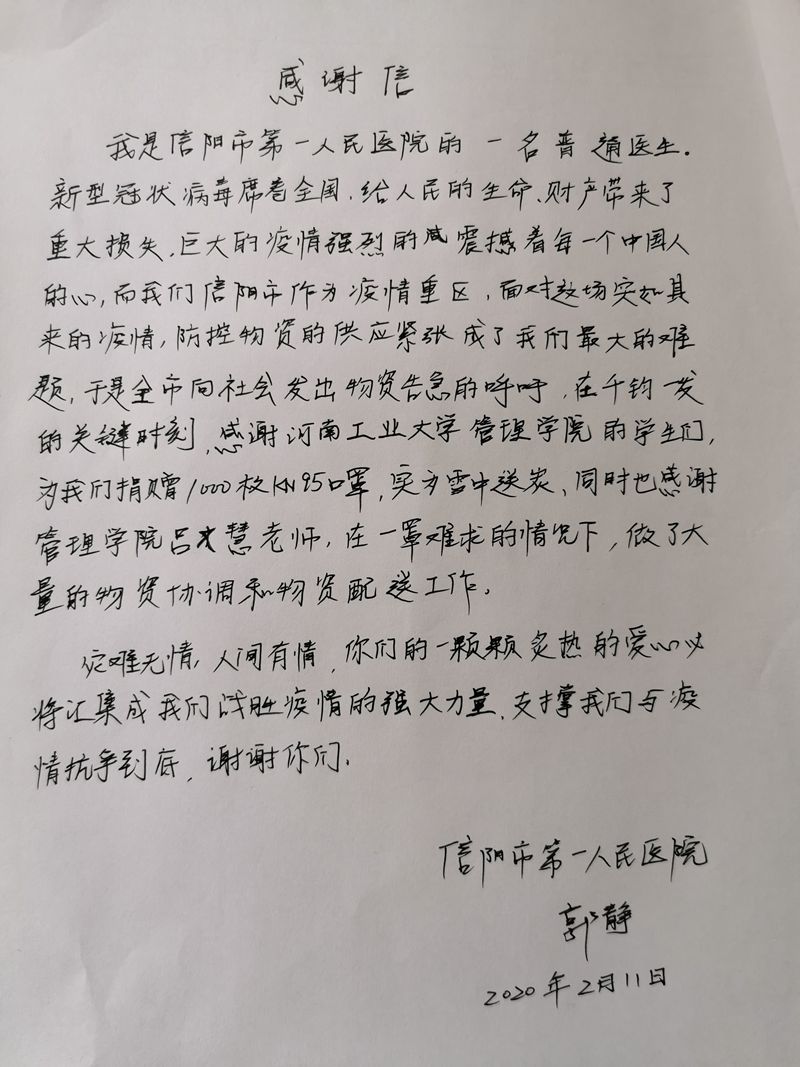 感谢信
我是信阳市第一人民医院的一名普通医生.
新型冠状病毒席卷全国,给人民的生命、财产带来了
重大损失,巨大的疫情强烈的震撼着每一个中国人
的心,而我们信阳市作为疫情重区,面对这场突如其
来的疫情,防控物资的供应紧张成了我们最大的难
题,于是全市向社会发出物资告急的呼吁,在千钧一发
的关键时刻,感谢河南工业大学管理学院的学生们,
为我们捐赠1000枚KN95口罩,实为雪中送炭、同时也感谢
管理学院吕慧老师,在一罩难求的情况下,做了大
量的物资协调和物资配送工作。
疫难无情,人间有情,你们的一颗颗炙热的爱心必
将汇集成我们战胜疫情的强大力量,支撑我们与疫
情抗争到底,谢谢你们.
信阳市第一人民医院
郭静
2020年2月11日